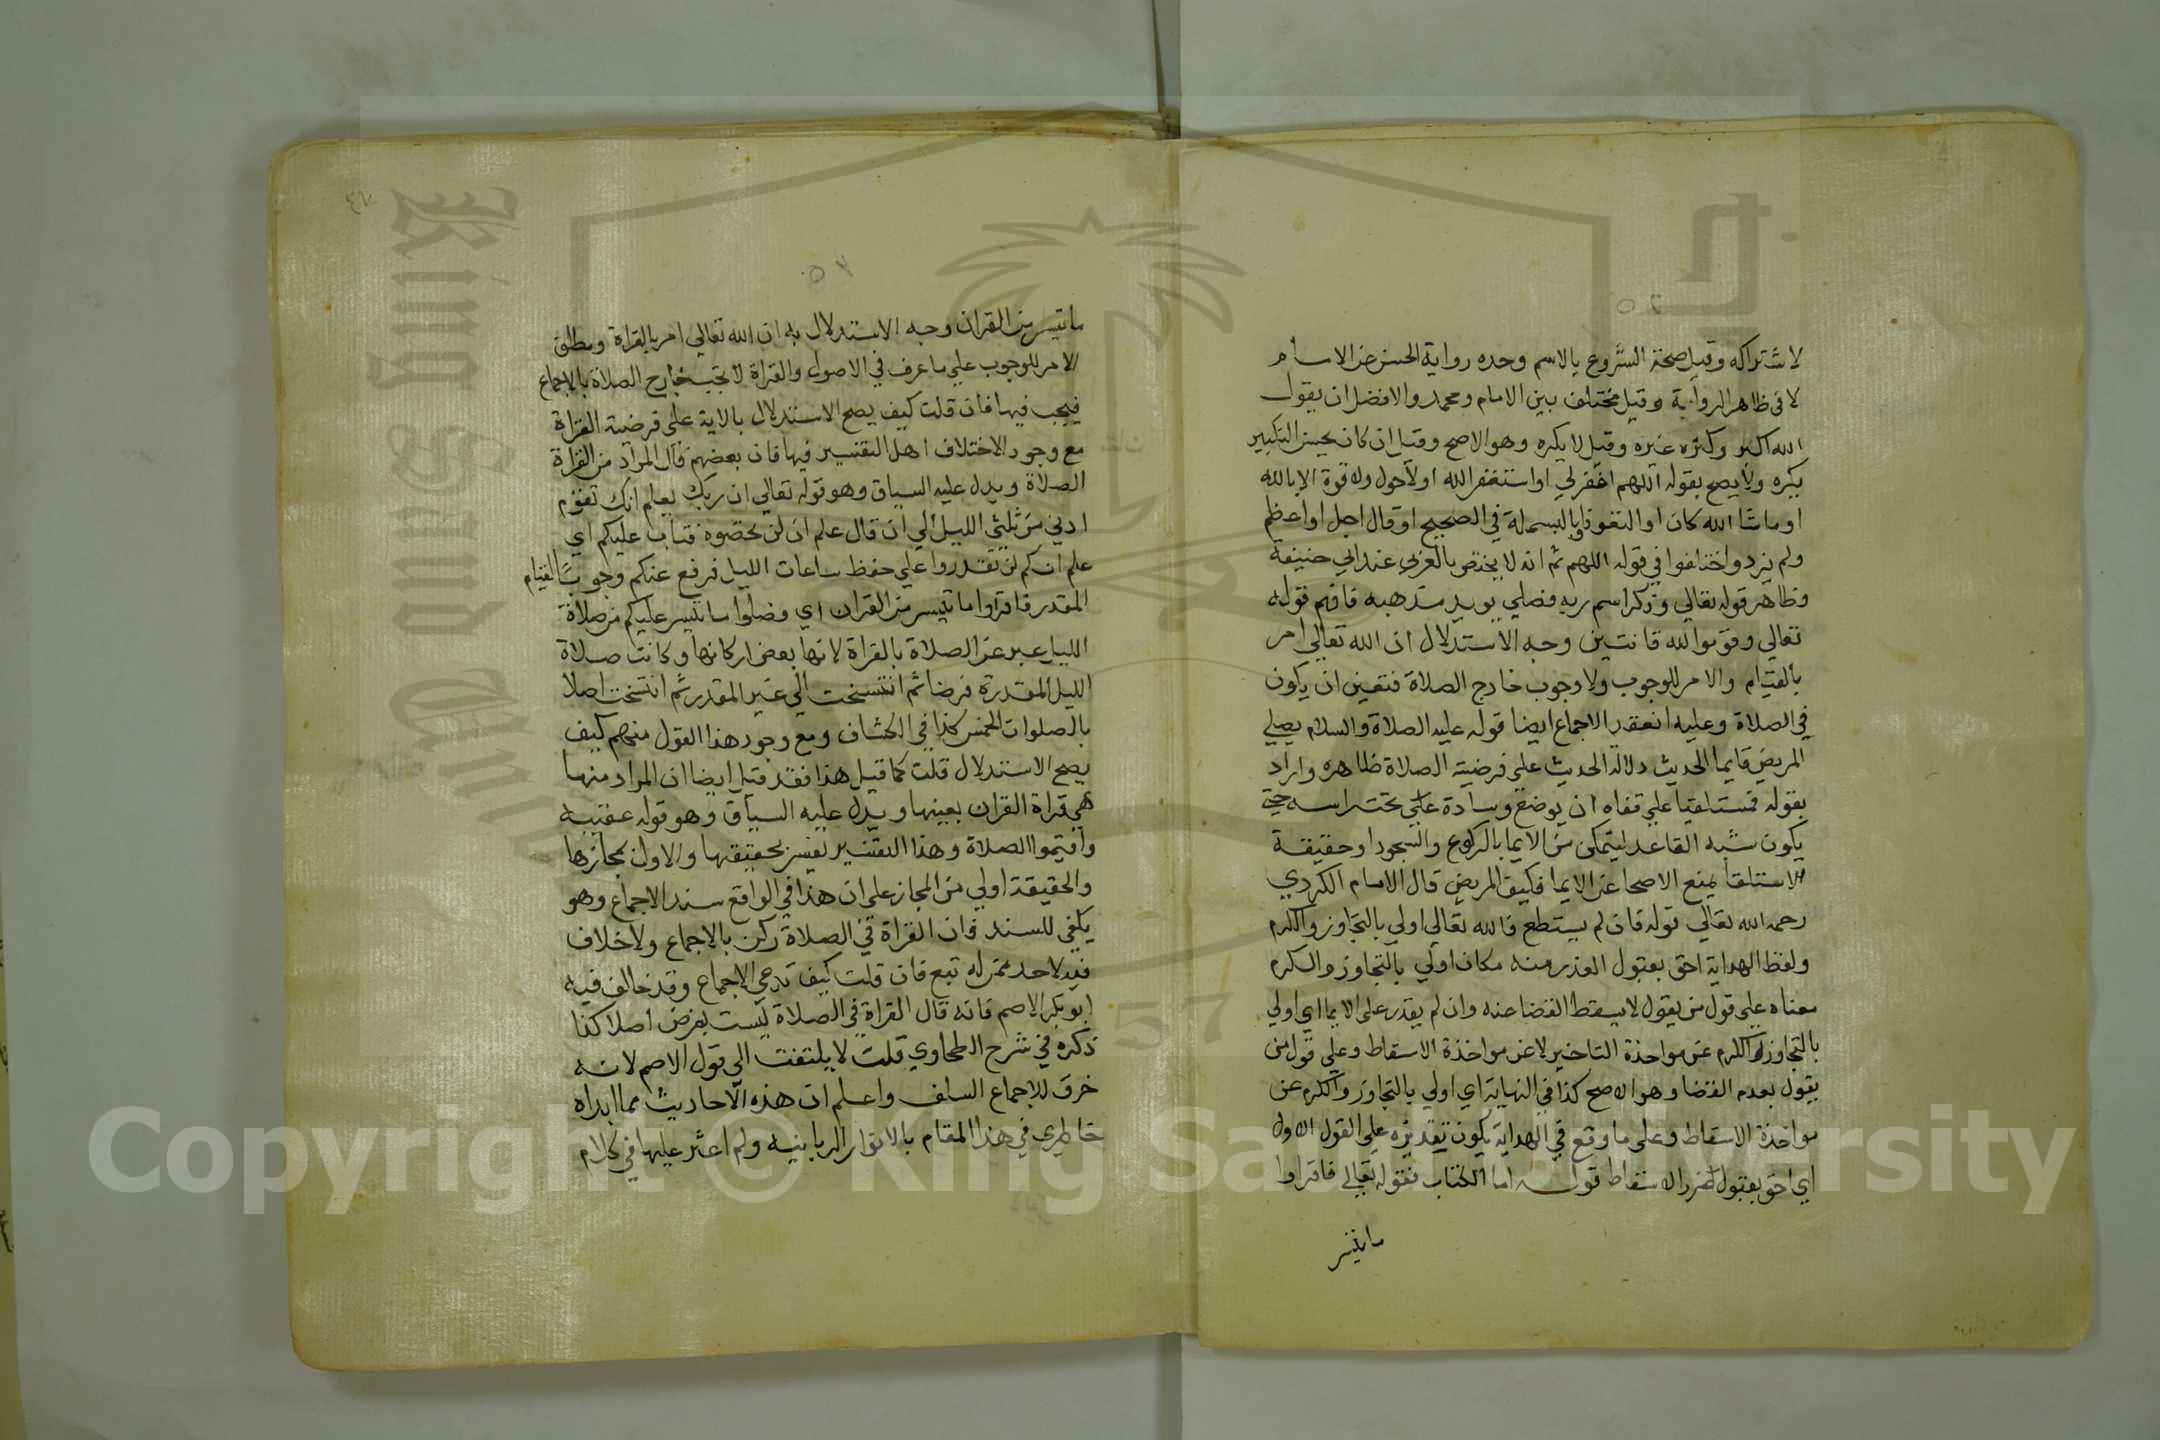 لاشتراكه وقيل صحة الشروع بالاسم وحده رواية الحسن عن الامام
لا في ظاهر الرواية وقيل مختلف بين الامام ومحمد والافضل ان يقول
الله اكبر وكره غيره وقيل لا يكره وهو الاصح وقيل ان كان يحسن التكبير
يكره ولا يصح بقوله اللهم اغفرلي او استغفر الله او لا حول ولا قوة الا بالله
او ما شا الله كان او التعوذ او بالبسملة في الصحيح او قال اجل او اعظم
ولم يزد واختلفوا في قوله اللهم ثم انه لا يختص بالعربي عند ابي حنيفة
وظاهر قوله تعالي وذكر اسم ربه فصلي يويد مذهبه فافهم قوله
تعالي وقوموا لله قانتين وجه الاستدلال ان الله تعالي امر
بالقيام والامر للوجوب ولا وجوب خارج الصلاة فتعين ان يكون
في الصلاة وعليه انعقد الاجماع ايضا قوله عليه الصلاة والسلام يصلي
المريض قايما الحديث دلالة الحديث علي فرضية الصلاة ظاهره واراد
بقوله فمستلقيا علي قفاه ان يوضع وسادة علي تحت راسه حتي
يكون شبه القاعد ليتمكن من الايما بالركوع والسجود او حقيقة
الاستلقا يمنع الاصحا عن الايما فكيف المريض قال الامام الكردي
رحمه الله تعالي قوله فان لم يستطع فالله تعالي اولي بالتجاوز والكرم
ولفظ الهداية احق بقبول العذر منه مكان اولي بالتجاوز والكرم
معناه علي قول من يقول لا يسقط القضا عنه وان لم يقدر علي الايما اي اولي
بالتجاوز والكرم عن مواخذة التاخير لا عن مواخذة الاسقاط وعلي قول من
يقول بعدم القضا وهو الاصح كذا في النهاية اي اولي بالتجاوز والكرم عن
مواخذة الاسقاط وعلي ما وقع في الهداية يكون تقديره علي القول الاول
اي احق بقبول عذر الاسقاط قوله اما الكتاب فقوله تعالي فاقراوا
ما تيسر
ما تيسر من القران وجه الاستدلال به ان الله تعالي امر بالقراة ومطلق
الامر للوجوب علي ما عرف في الاصول والقراة لا تجب خارج الصلاة بالاجماع
فيجب فيها فان قلت كيف يصح الاستدلال بالاية علي فرضية القراة
مع وجود الاختلاف اهل التفسير فيها فان بعضهم قال المراد من القراة
الصلاة ويدل عليه السياق وهو قوله تعالي ان ربك يعلم انك تقوم
ادني من ثلثي الليل الي ان قال علم ان لن تحصوه فتاب عليكم اي
علم انكم لن تقدروا علي حفظ ساعات الليل فرفع عنكم وجوب القيام
المقدر فاقراوا ما تيسر من القران اي وصلوا ما تيسر عليكم من صلاة
الليل عبر عن الصلاة بالقراة لانها بعض اركانها وكانت صلاة
الليل المقدرة فرضا ثم انتسخت الي غير المقدر ثم انتسخت اصلا
بالصلوات الخمس كذا في الكشاف ومع وجود هذا القول منهم كيف
يصح الاستدلال قلت كما قيل هذا فقد قيل ايضا ان المراد منها
هي قراة القران بعينها ويدل عليه السياق وهو قوله عقيبه
واقيموا الصلاة وهذا التفسير تفسير بحقيقتها والاول بمجازها
والحقيقة اولي من المجاز علي ان هذا في الواقع سند الاجماع وهو
يكفي للسند فان القراة في الصلاة ركن بالاجماع ولا خلاف
فيه لاحد ممن له تبع فان قلت كيف تدعي الاجماع وقد خالف فيه
ابو بكر الاصم فانه قال القراة في الصلاة ليست بفرض اصلا كذا
ذكره في شرح الطحاوي قلت لا يلتفت الي قول الاصم لانه
خرق للاجماع السلف واعلم ان هذه الاحاديث مما ابداه
خاطري في هذا المقام بالانوار الربانيه ولم اعثر عليها في كلام
Copyright © King Saud University
King Saud University
1957